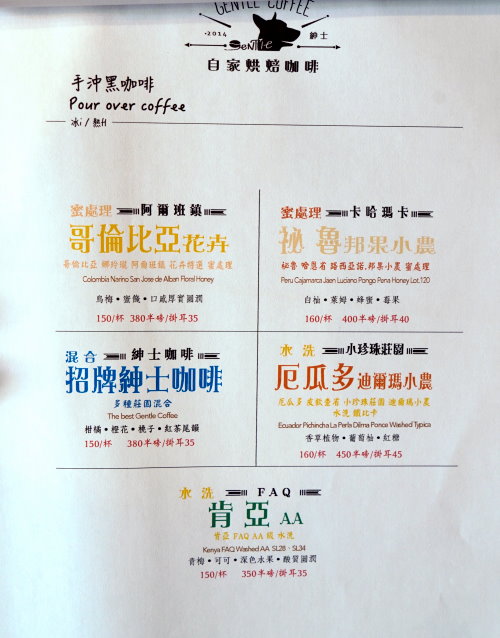 GENTLE COFFEE
·2014
紳士
GeNTle
自家烘焙咖啡
手沖黑咖啡
Pour over coffee
冰i / 熱H
蜜處理 阿爾班鎮
哥倫比亞花卉
哥倫比亞 娜玲瓏 阿爾班鎮 花卉特選 蜜處理
Colombia Narino San Jose de Alban Floral Honey
烏梅•蜜餞•口感厚實圓潤
150/杯 380半磅/掛耳35
蜜處理 卡哈瑪卡
祕魯邦果小農
秘魯 哈恩省 路西亞諾.邦果小農 蜜處理
Peru Cajamarca Jaen Luciano Pongo Pena Honey Lot.120
白柚•萊姆•蜂蜜•莓果
160/杯 400半磅/掛耳40
混合 紳士咖啡
招牌紳士咖啡
多種莊園混合
The best Gentle Coffee
柑橘•橙花•桃子•紅茶尾韻
150/杯 380半磅/掛耳35
水洗 小珍珠莊園
厄瓜多迪爾瑪小農
厄瓜多 皮欽查省 小珍珠莊園 迪爾瑪小農
水洗 鐵比卡
Ecuador Pichincha La Perla Dilma Ponce Washed Typica
香草植物•葡萄柚•紅糖
160/杯 450半磅/掛耳45
水洗 FAQ
肯亞 AA
肯亞 FAQ AA 級 水洗
Kenya FAQ Washed AA SL28、SL34
青梅•可可•深色水果•酸質圓潤
150/杯 350半磅/掛耳35